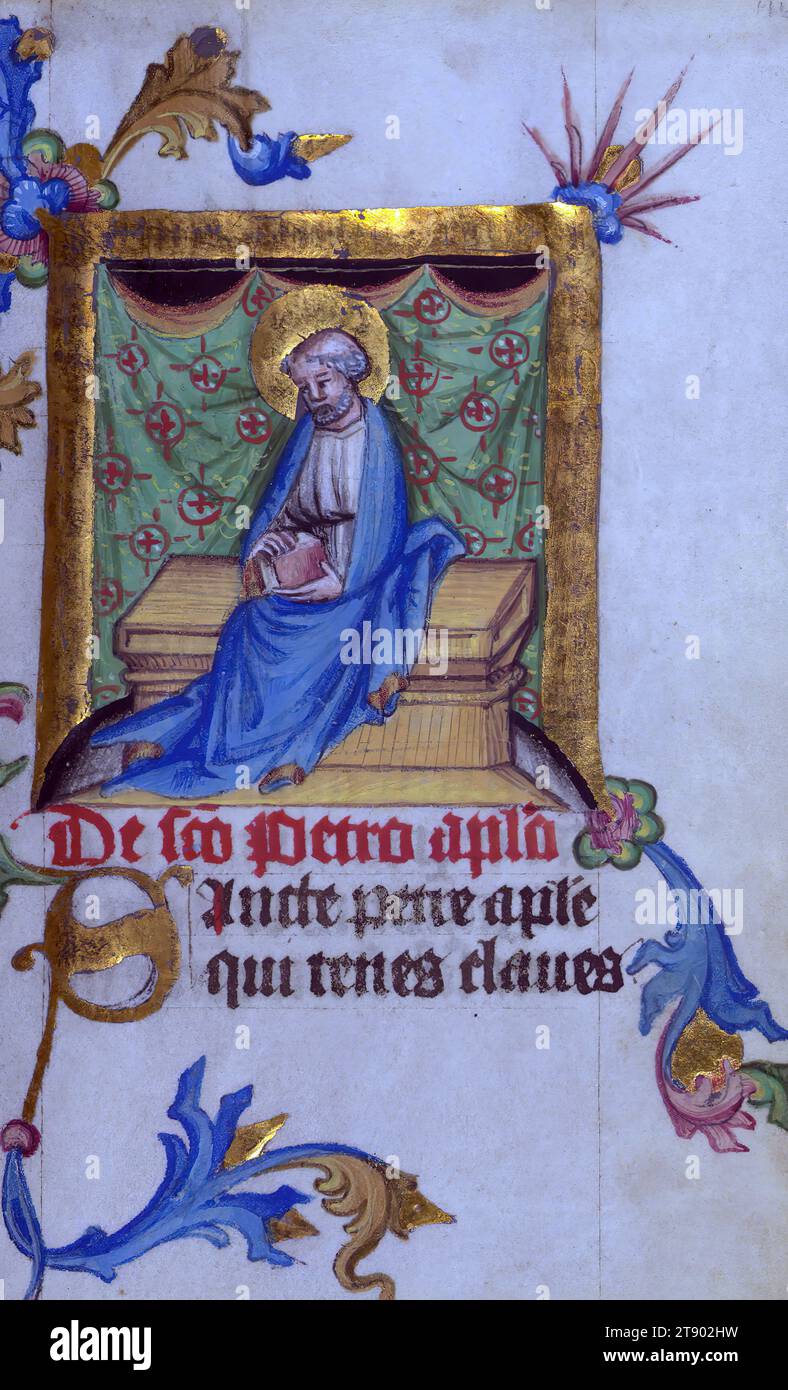 De sc̄o Pietro aplō
Sancte petre aplē
qui tenes claues
alamy
Image ID: 2T902HW
www.alamy.com